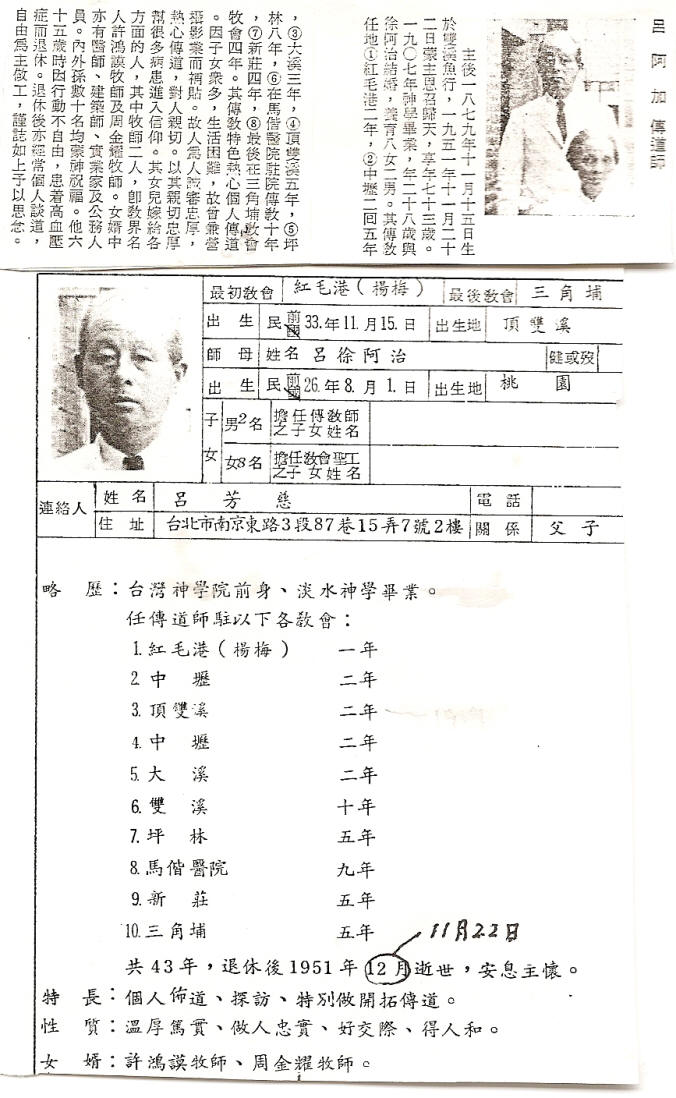 呂阿加傳道師
主後一八七九年十一月十五日生
於雙溪魚行，一九五一年十一月二十
二日蒙主恩召歸天，享年七十三歲。
一九〇七年神學畢業，年二十八歲與
徐阿治結婚，養育八女二男。其傳教
任地①紅毛港二年，②中壢二回五年
，③大溪三年，④頂雙溪五年，⑤坪
林八年，⑥在馬偕醫院駐院傳教十年
，⑦新莊四年，⑧最後在三角埔教會
牧會四年。其傳教特色熱心個人傳道
。因子女衆多，生活困難，故曾兼營
攝影業而補貼。故人為人誠審忠厚，
熱心傳道，對人親切。以其親切忠厚
幫很多病患進入信仰。其女兒嫁給各
方面的人，其中牧師二人，卽教界名
人許鴻謨牧師及周金耀牧師。女婿中
亦有醫師、建築師、實業家及公務人
員。內外孫數十名均蒙神祝福。他六
十五歲時因行動不自由，患着高血壓
症而退休。退休後亦經常個人談道，
自由為主做工，謹誌如上予以思念。
最初教會 紅毛港（楊梅） 最後教會 三角埔
出生 民前國 33.年11.月15.日 出生地 頂雙溪
師母 姓名 呂徐阿治 健或歿
出生 民前國 26.年8.月1.日 出生地 桃園
子女 男2名 擔任傳教師之子女姓名
女8名 擔任教會聖工之子女姓名
連絡人 姓名 呂芳慈 電話
住址 台北市南京東路3段87巷15弄7號2樓 關係 父子
略歷：台灣神學院前身、淡水神學畢業。
任傳道師駐以下各教會：
1.紅毛港（楊梅） 一年
2.中壢 二年
3.頂雙溪 二年
4.中壢 二年
5.大溪 二年
6.雙溪 十年
7.坪林 五年
8.馬偕醫院 九年
9.新莊 五年
10.三角埔 五年
11月22日
共43年，退休後1951年12月逝世，安息主懷。
特長：個人佈道、探訪、特別做開拓傳道。
性質：溫厚篤實、做人忠實、好交際、得人和。
女婿：許鴻謨牧師、周金耀牧師。